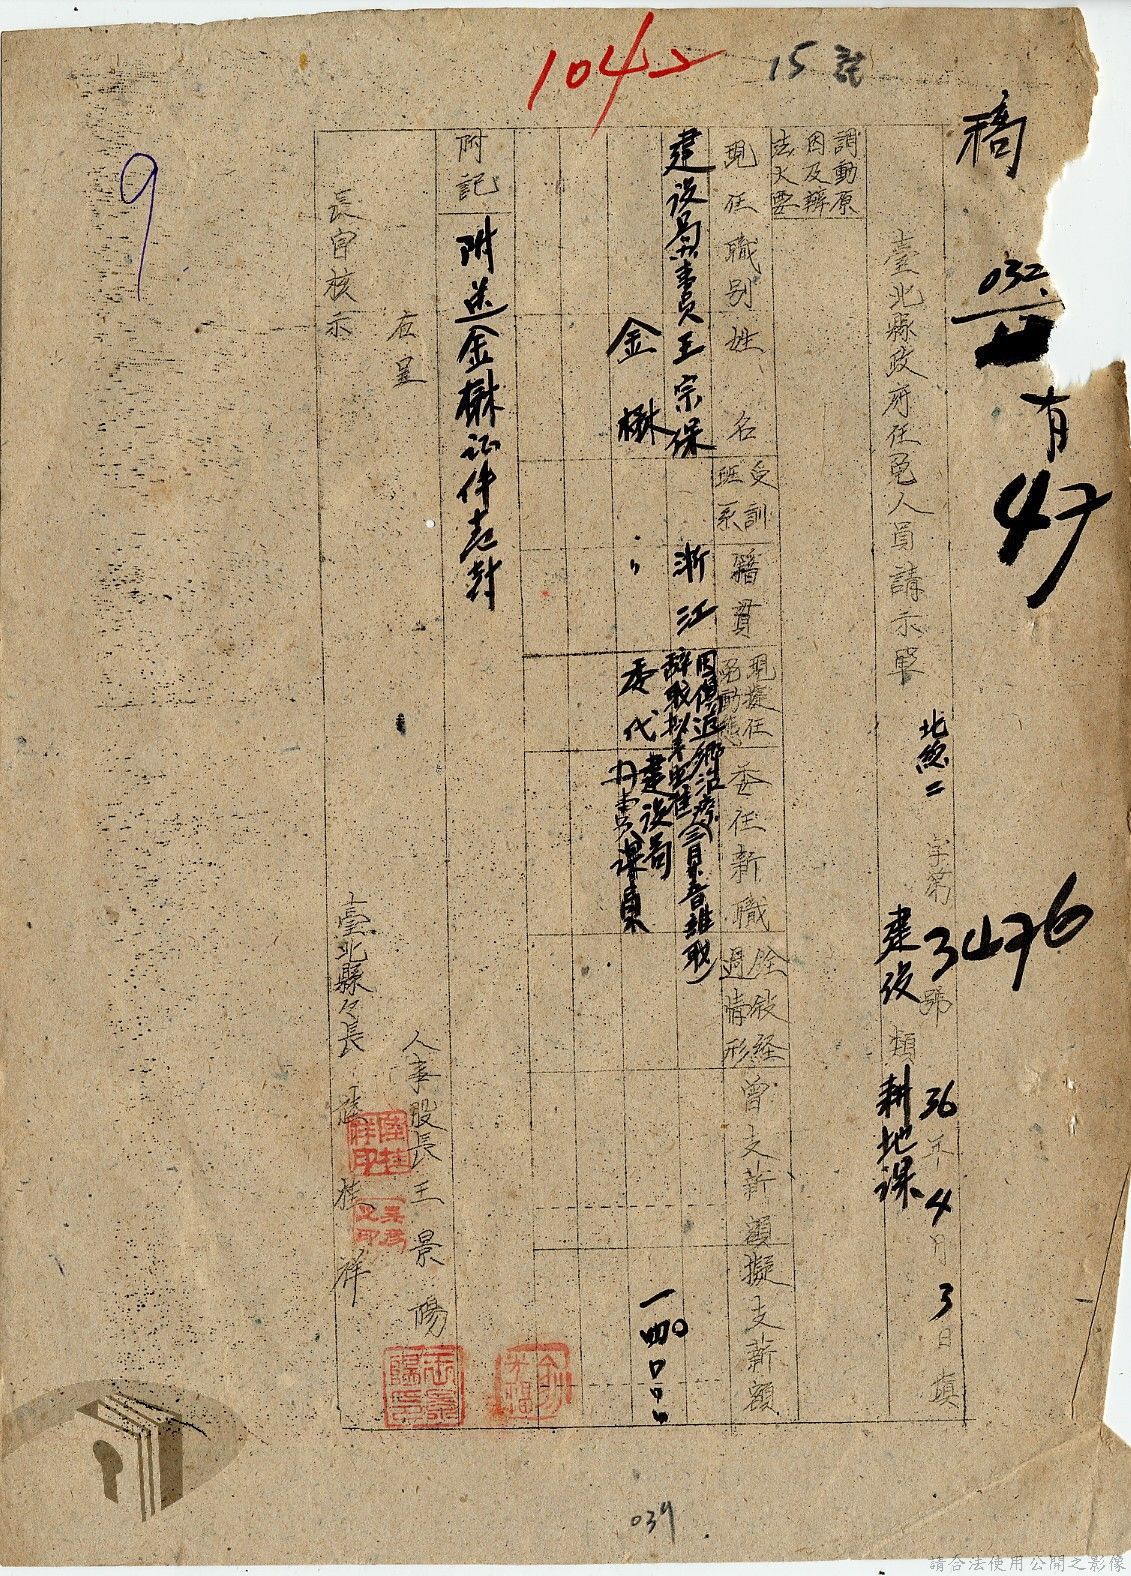 1042
15
稿
032
有
47
臺北縣政府任免人員請示單
北總二字第3476號
36年4月3日填
建設類耕地課
調動原因及辦法大要
現任職別
姓名
受訓班系
籍貫
現擬任免動態
委任新職
銓敘經過情形
曾支薪額
擬支薪額
建設局
王宗保
浙江
因傷返鄉治療
金楙
〃
委代
建設局
課員
一四〇
附記
附送金楙証件壱封
右呈
長官核示
人事股長王景陽
臺北縣々長陸桂祥
9
039
請合法使用公開之影像